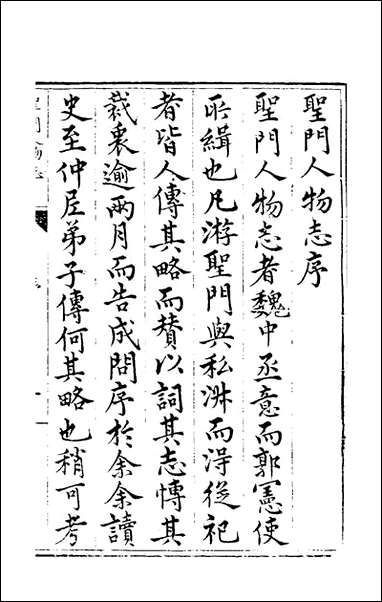 聖門人物志序
聖門人物志者魏中丞意而郭憲使
所緝也凡游聖門與私淑而得從祀
者皆人傳其略而賛以詞其志慱其
裁裏逾兩月而告成問序於余余讀
史至仲尼弟子傳何其略也稍可考